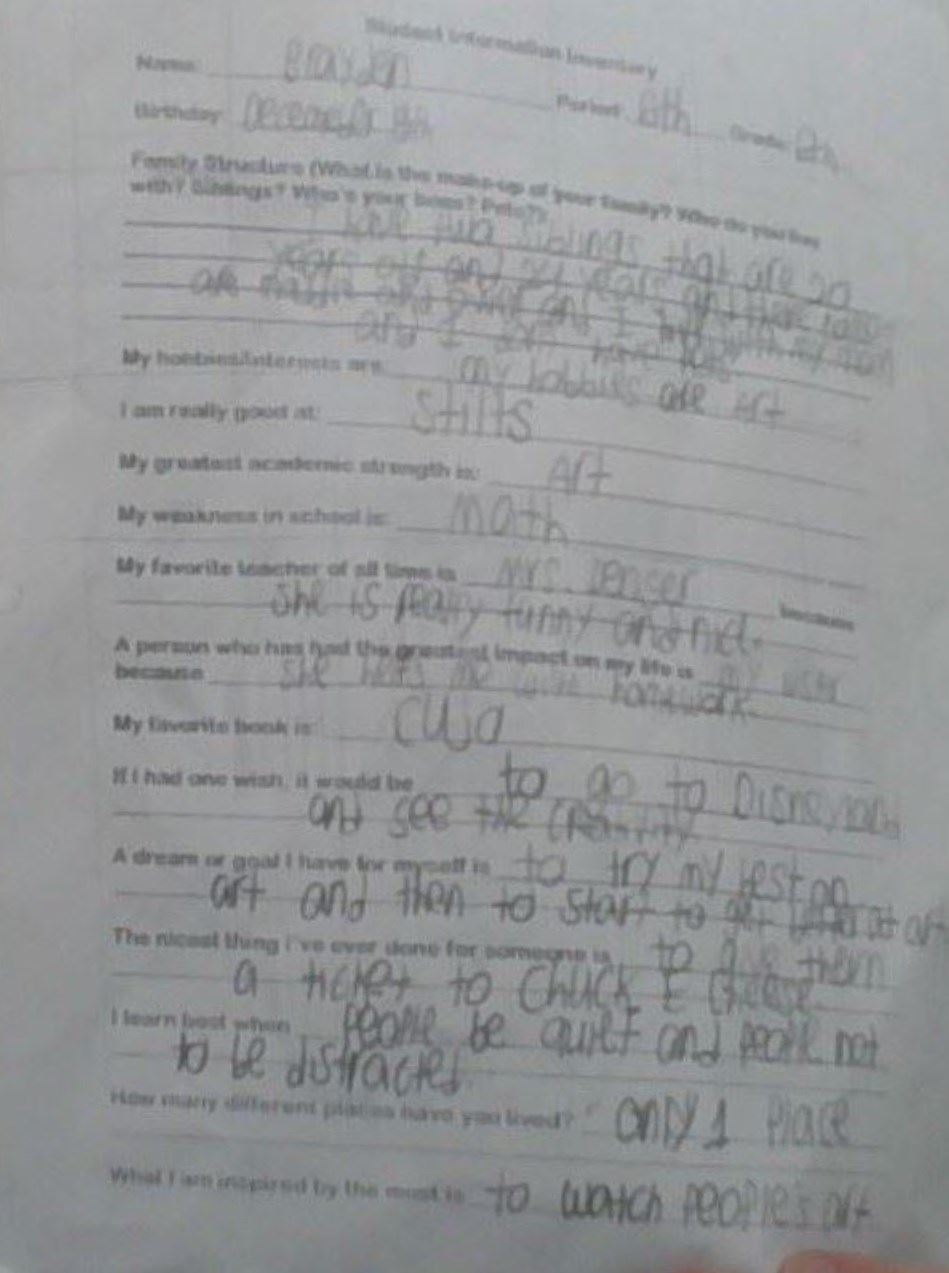 Student Information Inventory
Name: Brayden Period: 6th Grade: 8th
Birthday: December 9th
Family Structure (What is the make-up of your family? Who do you live
with? Siblings? Who's your boss? Pets?):
I have two siblings that are 20
years old and years and there names
are and and I live with my mom
and I don't have
My hobbies/interests are: my hobbies are art
I am really good at: stilts
My greatest academic strength is: Art
My weakness in school is: math
My favorite teacher of all time is Mrs. because
she is really funny and nice.
A person who has had the greatest impact on my life is my
because she helps me with homework.
My favorite book is: Cujo
If I had one wish, it would be to go to Disneyland
and see the
A dream or goal I have for myself is to try my best on
art and then to start to get better at art
The nicest thing I've ever done for someone is to give them
a ticket to Chuck E Cheese
I learn best when people be quiet and people not
to be distracted
How many different places have you lived? only 1 place
What I am inspired by the most is to watch people's art